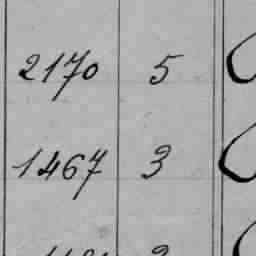 2170 5
1467 3